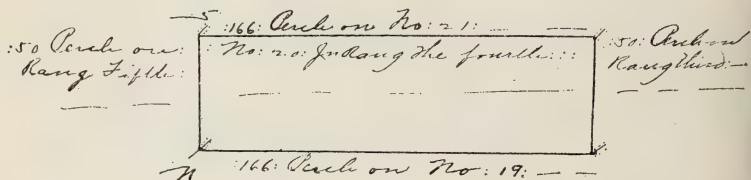 S
:166: Perch on No: 21:
:50 Perch on:
Rang Fifth:
No: 20: In Rang the fourth:::
:50: Perch on
Rang third:
N
:166: Perch on No: 19: